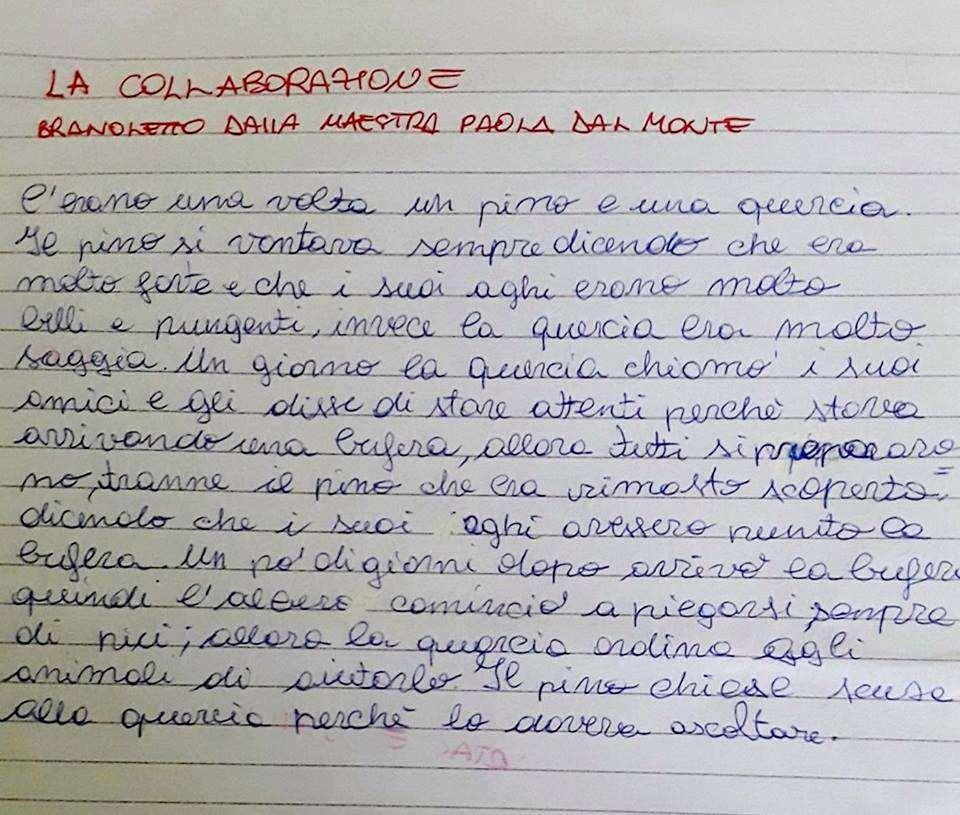 LA COLLABORAZIONE
BRANO LETTO DALLA MAESTRA PAOLA DAL MONTE
C'erano una volta un pino e una quercia.
Il pino si vantava sempre dicendo che era
molto forte e che i suoi aghi erano molto
belli e pungenti, invece la quercia era molto
saggia. Un giorno la quercia chiamò i suoi
amici e gli disse di stare attenti perché stava
arrivando una bufera, allora tutti si prepararo
no, tranne il pino che era rimasto scoperto,
dicendo che i suoi aghi avessero punito la
bufera. Un po' di giorni dopo arrivò la bufera
quindi l'albero cominciò a piegarsi sempre
di più; allora la quercia ordinò agli
animali di aiutarlo. Il pino chiese scusa
alla quercia perché lo doveva ascoltare.